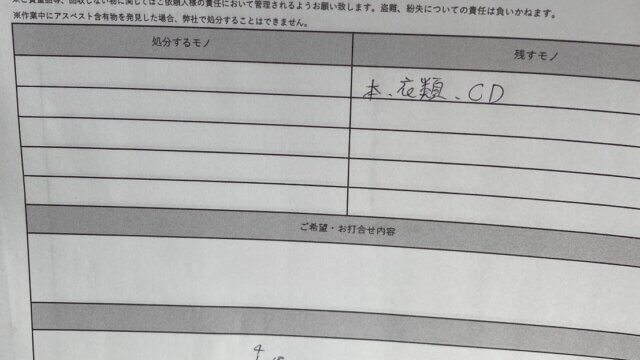 ※ご貴重品等、回収しない物に関してはご依頼人様の責任において管理されるようお願い致します。盗難、紛失についての責任は負いかねます。
※作業中にアスベスト含有物を発見した場合、弊社で処分することはできません。
処分するモノ
残すモノ
本、衣類、CD
ご希望・お打合せ内容
4